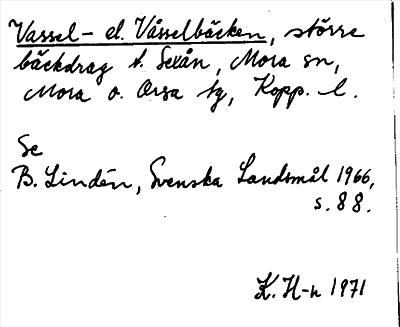 Vassel- el. Våsselbäcken, större
bäckdrag t. Sexån, Mora sn,
Mora o. Orsa tg, Kopp. l.
Se
B. Lindén, Svenska Landsmål 1966,
s. 88.
K. H-n 1971